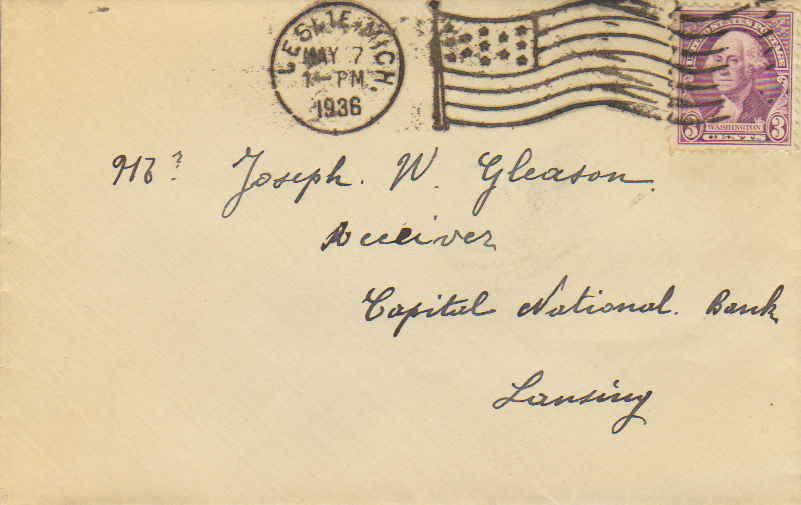 LESLIE, MICH.
MAY 7
1-PM
1936
UNITED STATES POSTAGE
3 WASHINGTON 3
CENTS
Mr. Joseph. W. Gleason.
Receiver
Capital National. Bank
Lansing